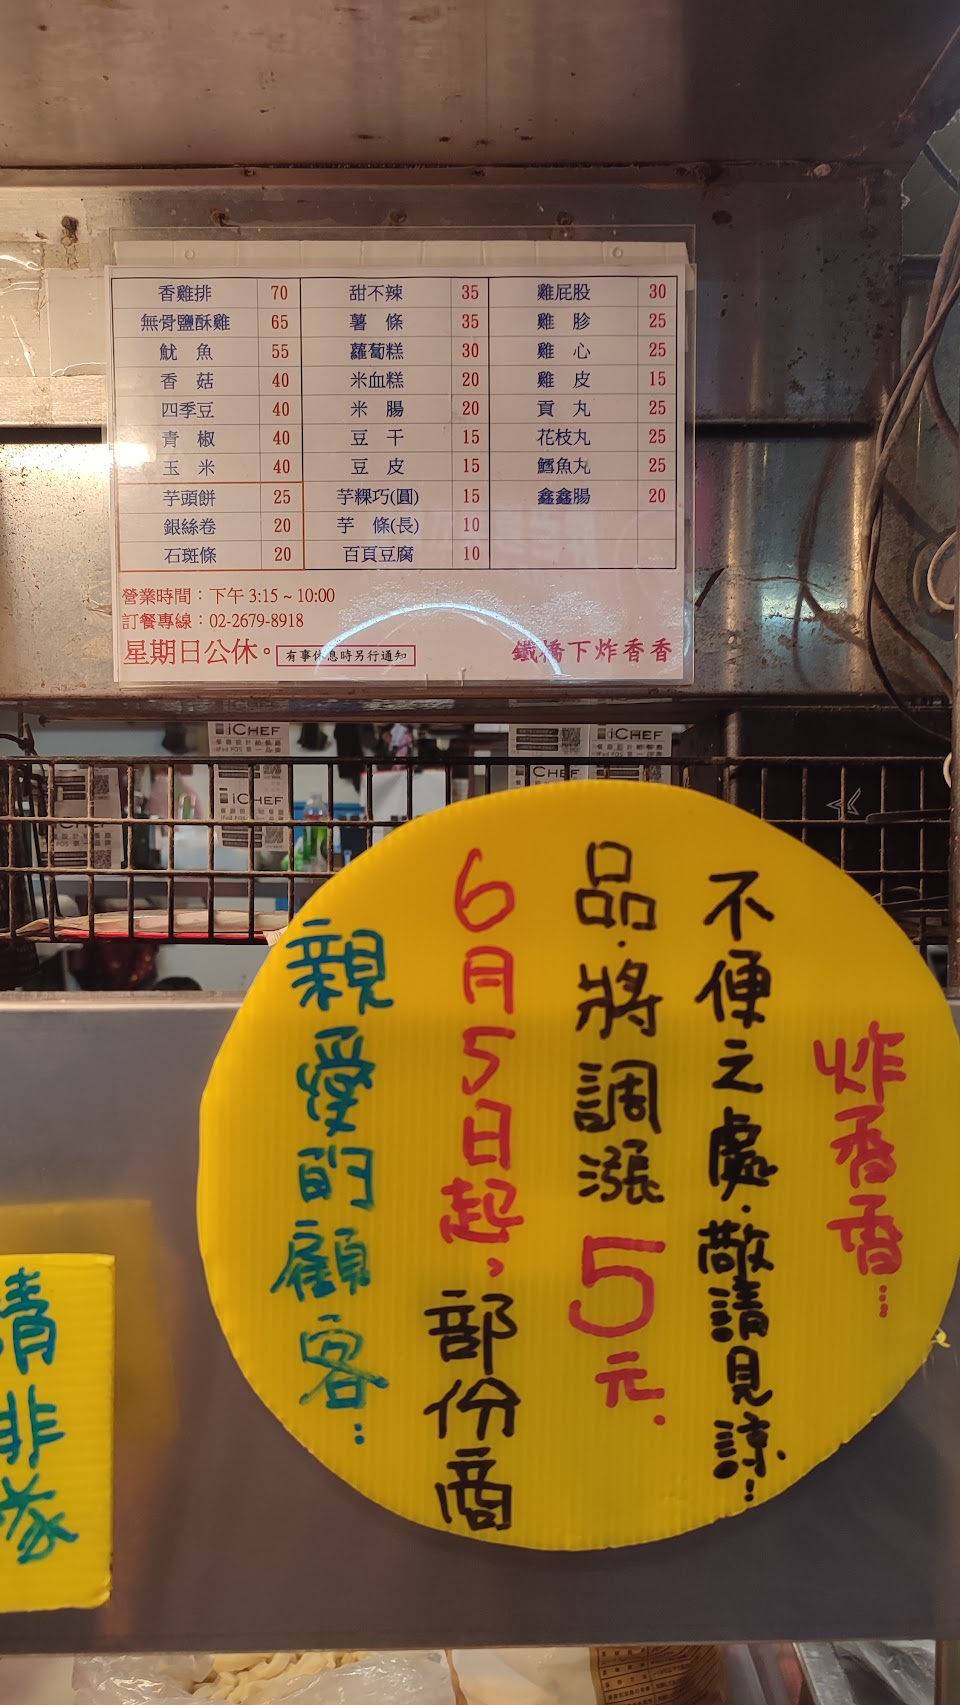 香雞排 70 甜不辣 35 雞屁股 30
無骨鹽酥雞 65 薯條 35 雞胗 25
魷魚 55 蘿蔔糕 30 雞心 25
香菇 40 米血糕 20 雞皮 15
四季豆 40 米腸 20 貢丸 25
青椒 40 豆干 15 花枝丸 25
玉米 40 豆皮 15 鱈魚丸 25
芋頭餅 25 芋粿巧(圓) 15 鑫鑫腸 20
銀絲卷 20 芋條(長) 10
石斑條 20 百頁豆腐 10
營業時間：下午 3:15 ~ 10:00
訂餐專線：02-2679-8918
星期日公休。 有事休息時另行通知 鐵橋下炸香香
iCHEF
iCHEF
iCHEF
iCHEF
親愛的顧客：
6月5日起，部份商
品.將調漲5元.
不便之處.敬請見諒！
炸香香…
請排隊